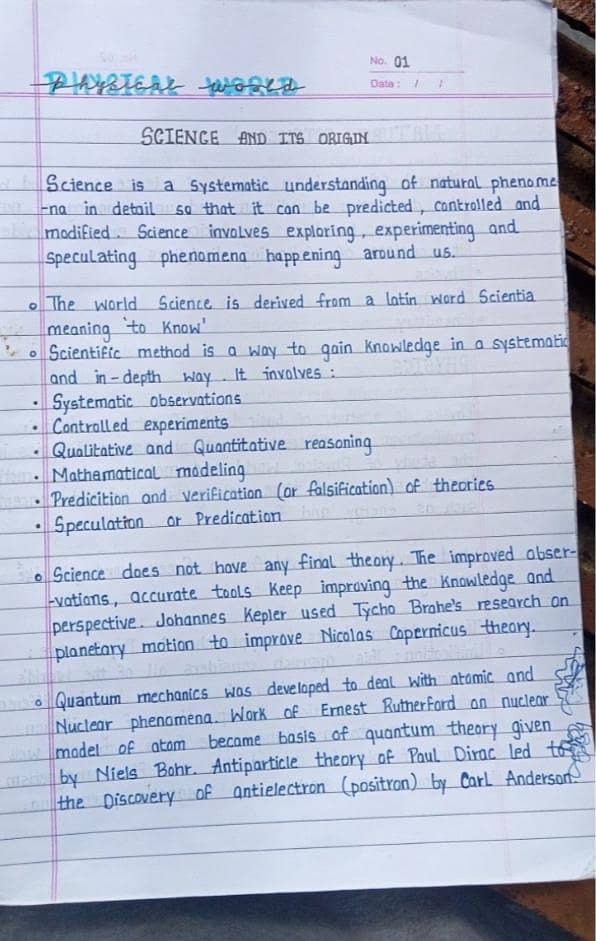 No. 01
Date: / /
PHYSICAL WORLD
Physical world
SCIENCE AND ITS ORIGIN
Science is a systematic understanding of natural phenome
-na in detail so that it can be predicted, controlled and
modified. Science involves exploring, experimenting and
speculating phenomena happening around us.
The world Science is derived from a latin word Scientia
meaning 'to Know'
Scientific method is a way to gain Knowledge in a systematic
and in-depth way. It involves:
• Systematic observations
• Controlled experiments
• Qualitative and Quantitative reasoning
• Mathematical modeling
• Predicition and verification (or falsification) of theories
• Speculation or Predication
Science does not have any final theory. The improved obser-
-vations, accurate tools Keep improving the Knowledge and
perspective. Johannes Kepler used Tycho Brahe's research on
planetary motion to improve Nicolas Copernicus theory.
Quantum mechanics was developed to deal with atomic and
Nuclear phenomena. Work of Ernest Rutherford on nuclear
model of atom became basis of quantum theory given
by Niels Bohr. Antiparticle theory of Paul Dirac led to
the Discovery of antielectron (positron) by Carl Anderson.